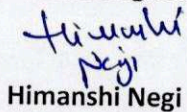 Himanshi
Negi
Himanshi Negi